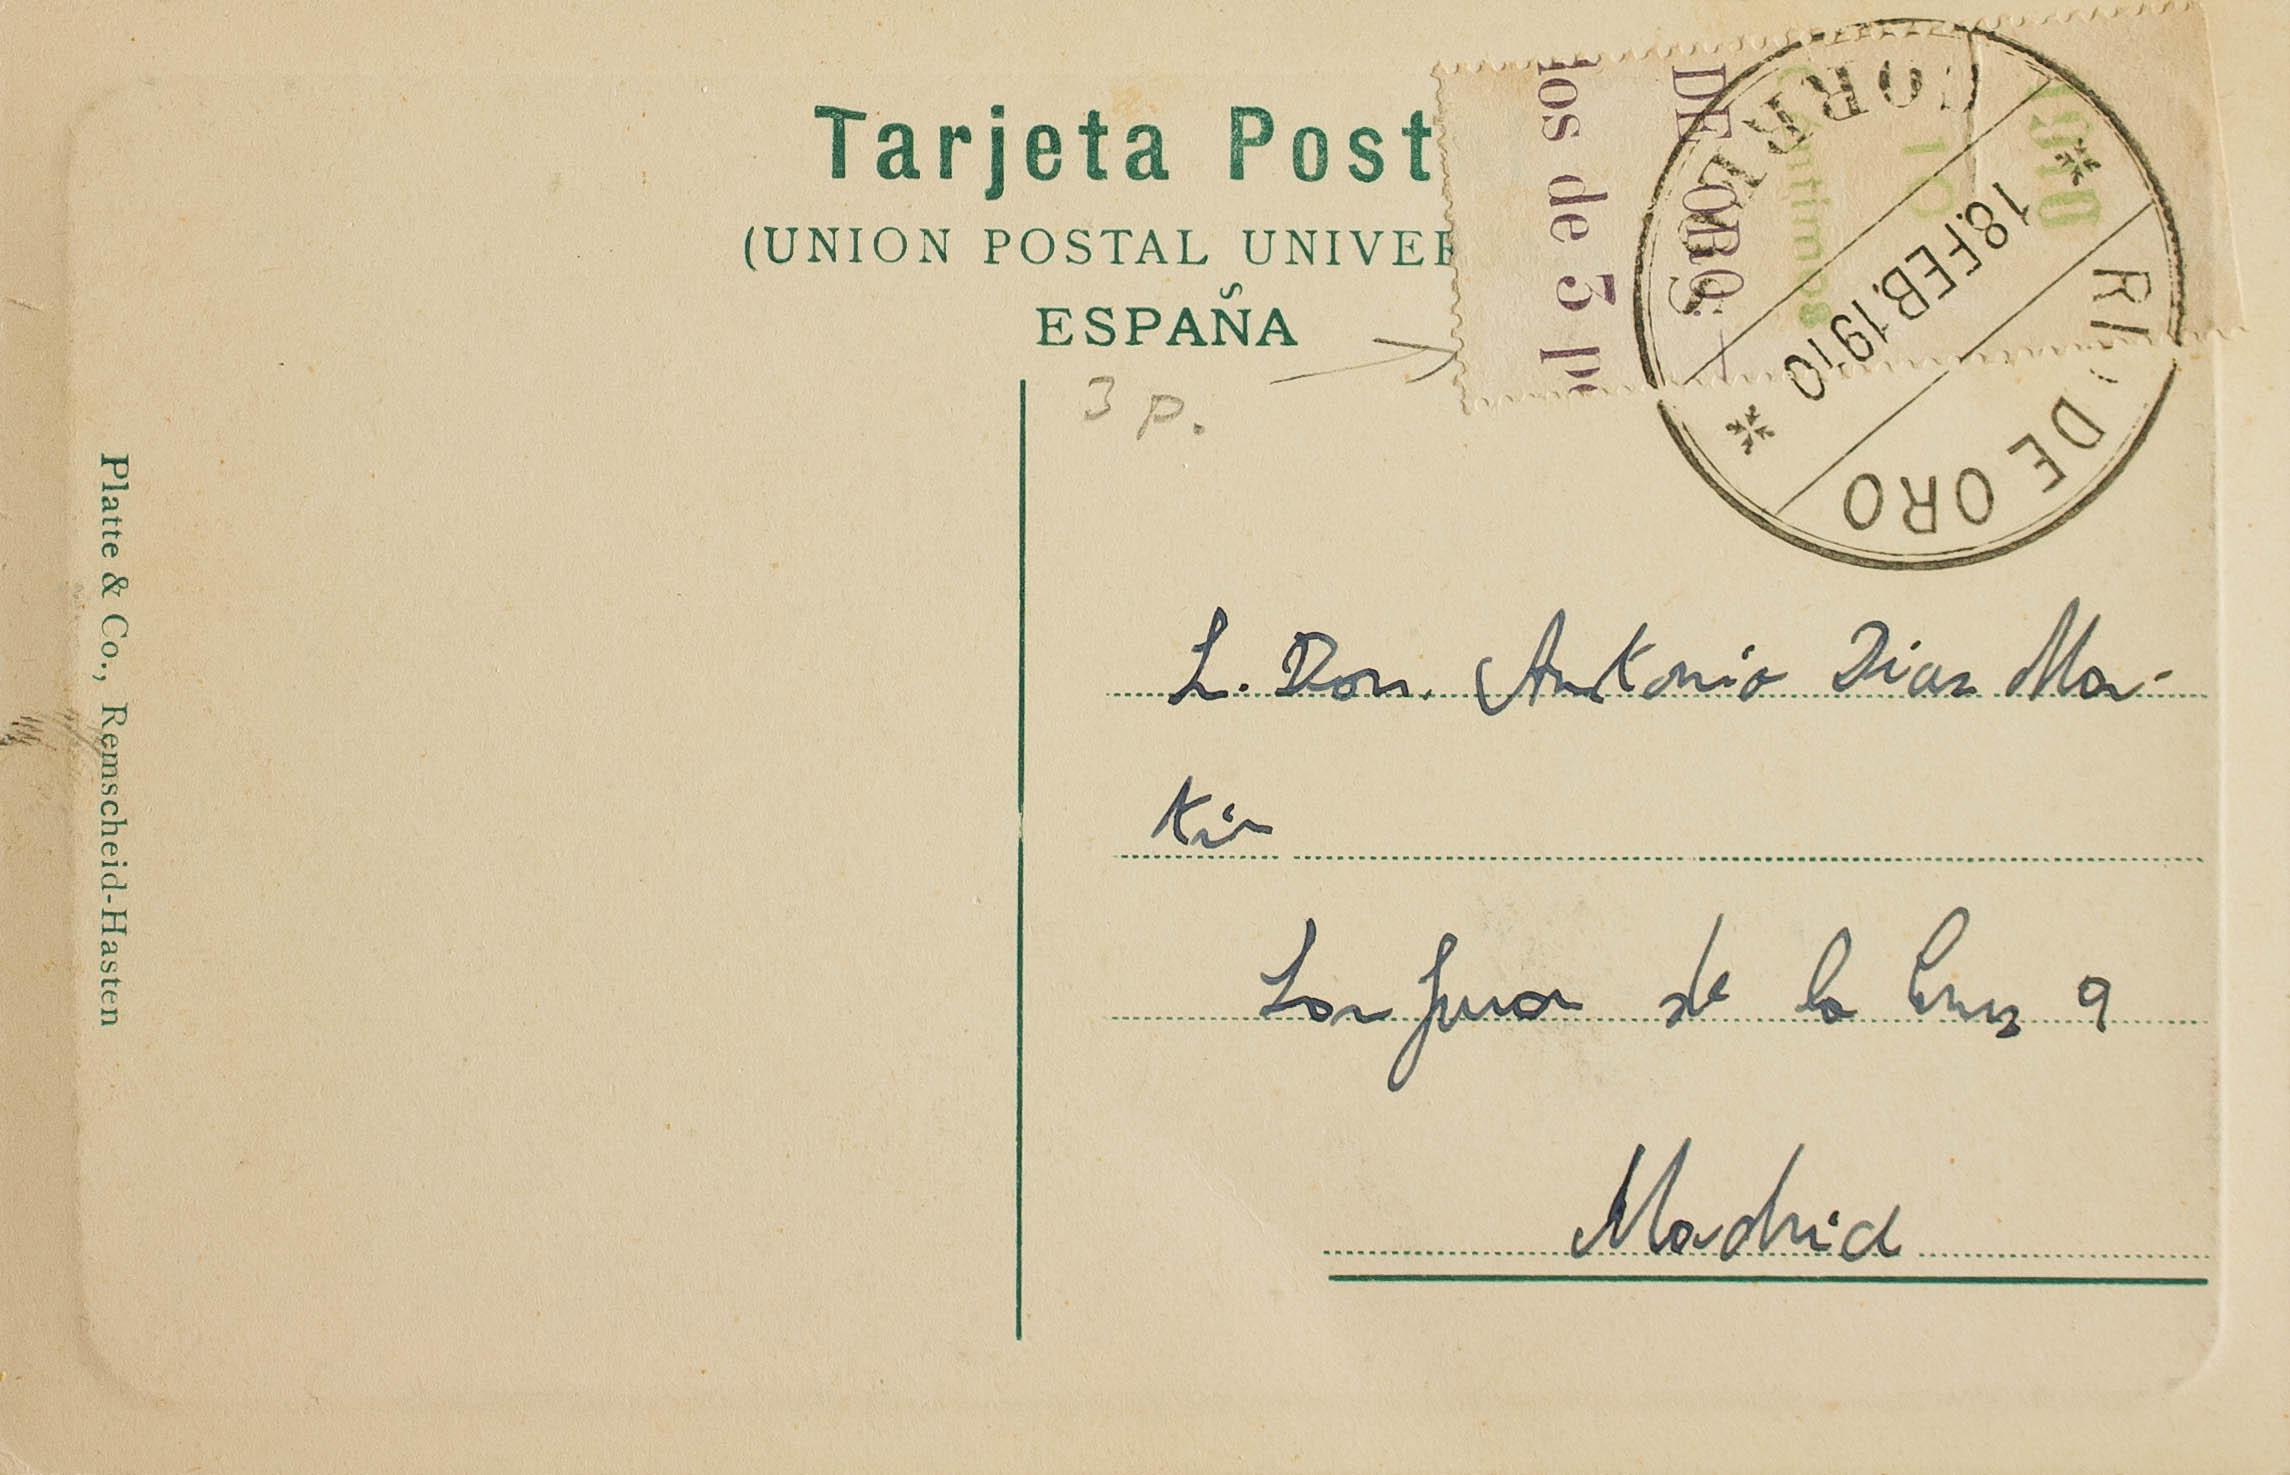 Tarjeta Post
(UNION POSTAL UNIVER
ESPAÑA
3 p.
los de 5 p
DE ORO
Céntimos
10
CORREOS
18.FEB.1910
RIO DE ORO
S. Don. Antonio Dias Mar-
tin
San Juan de la Cruz 9
Madrid
Platte & Co., Remscheid-Hasten